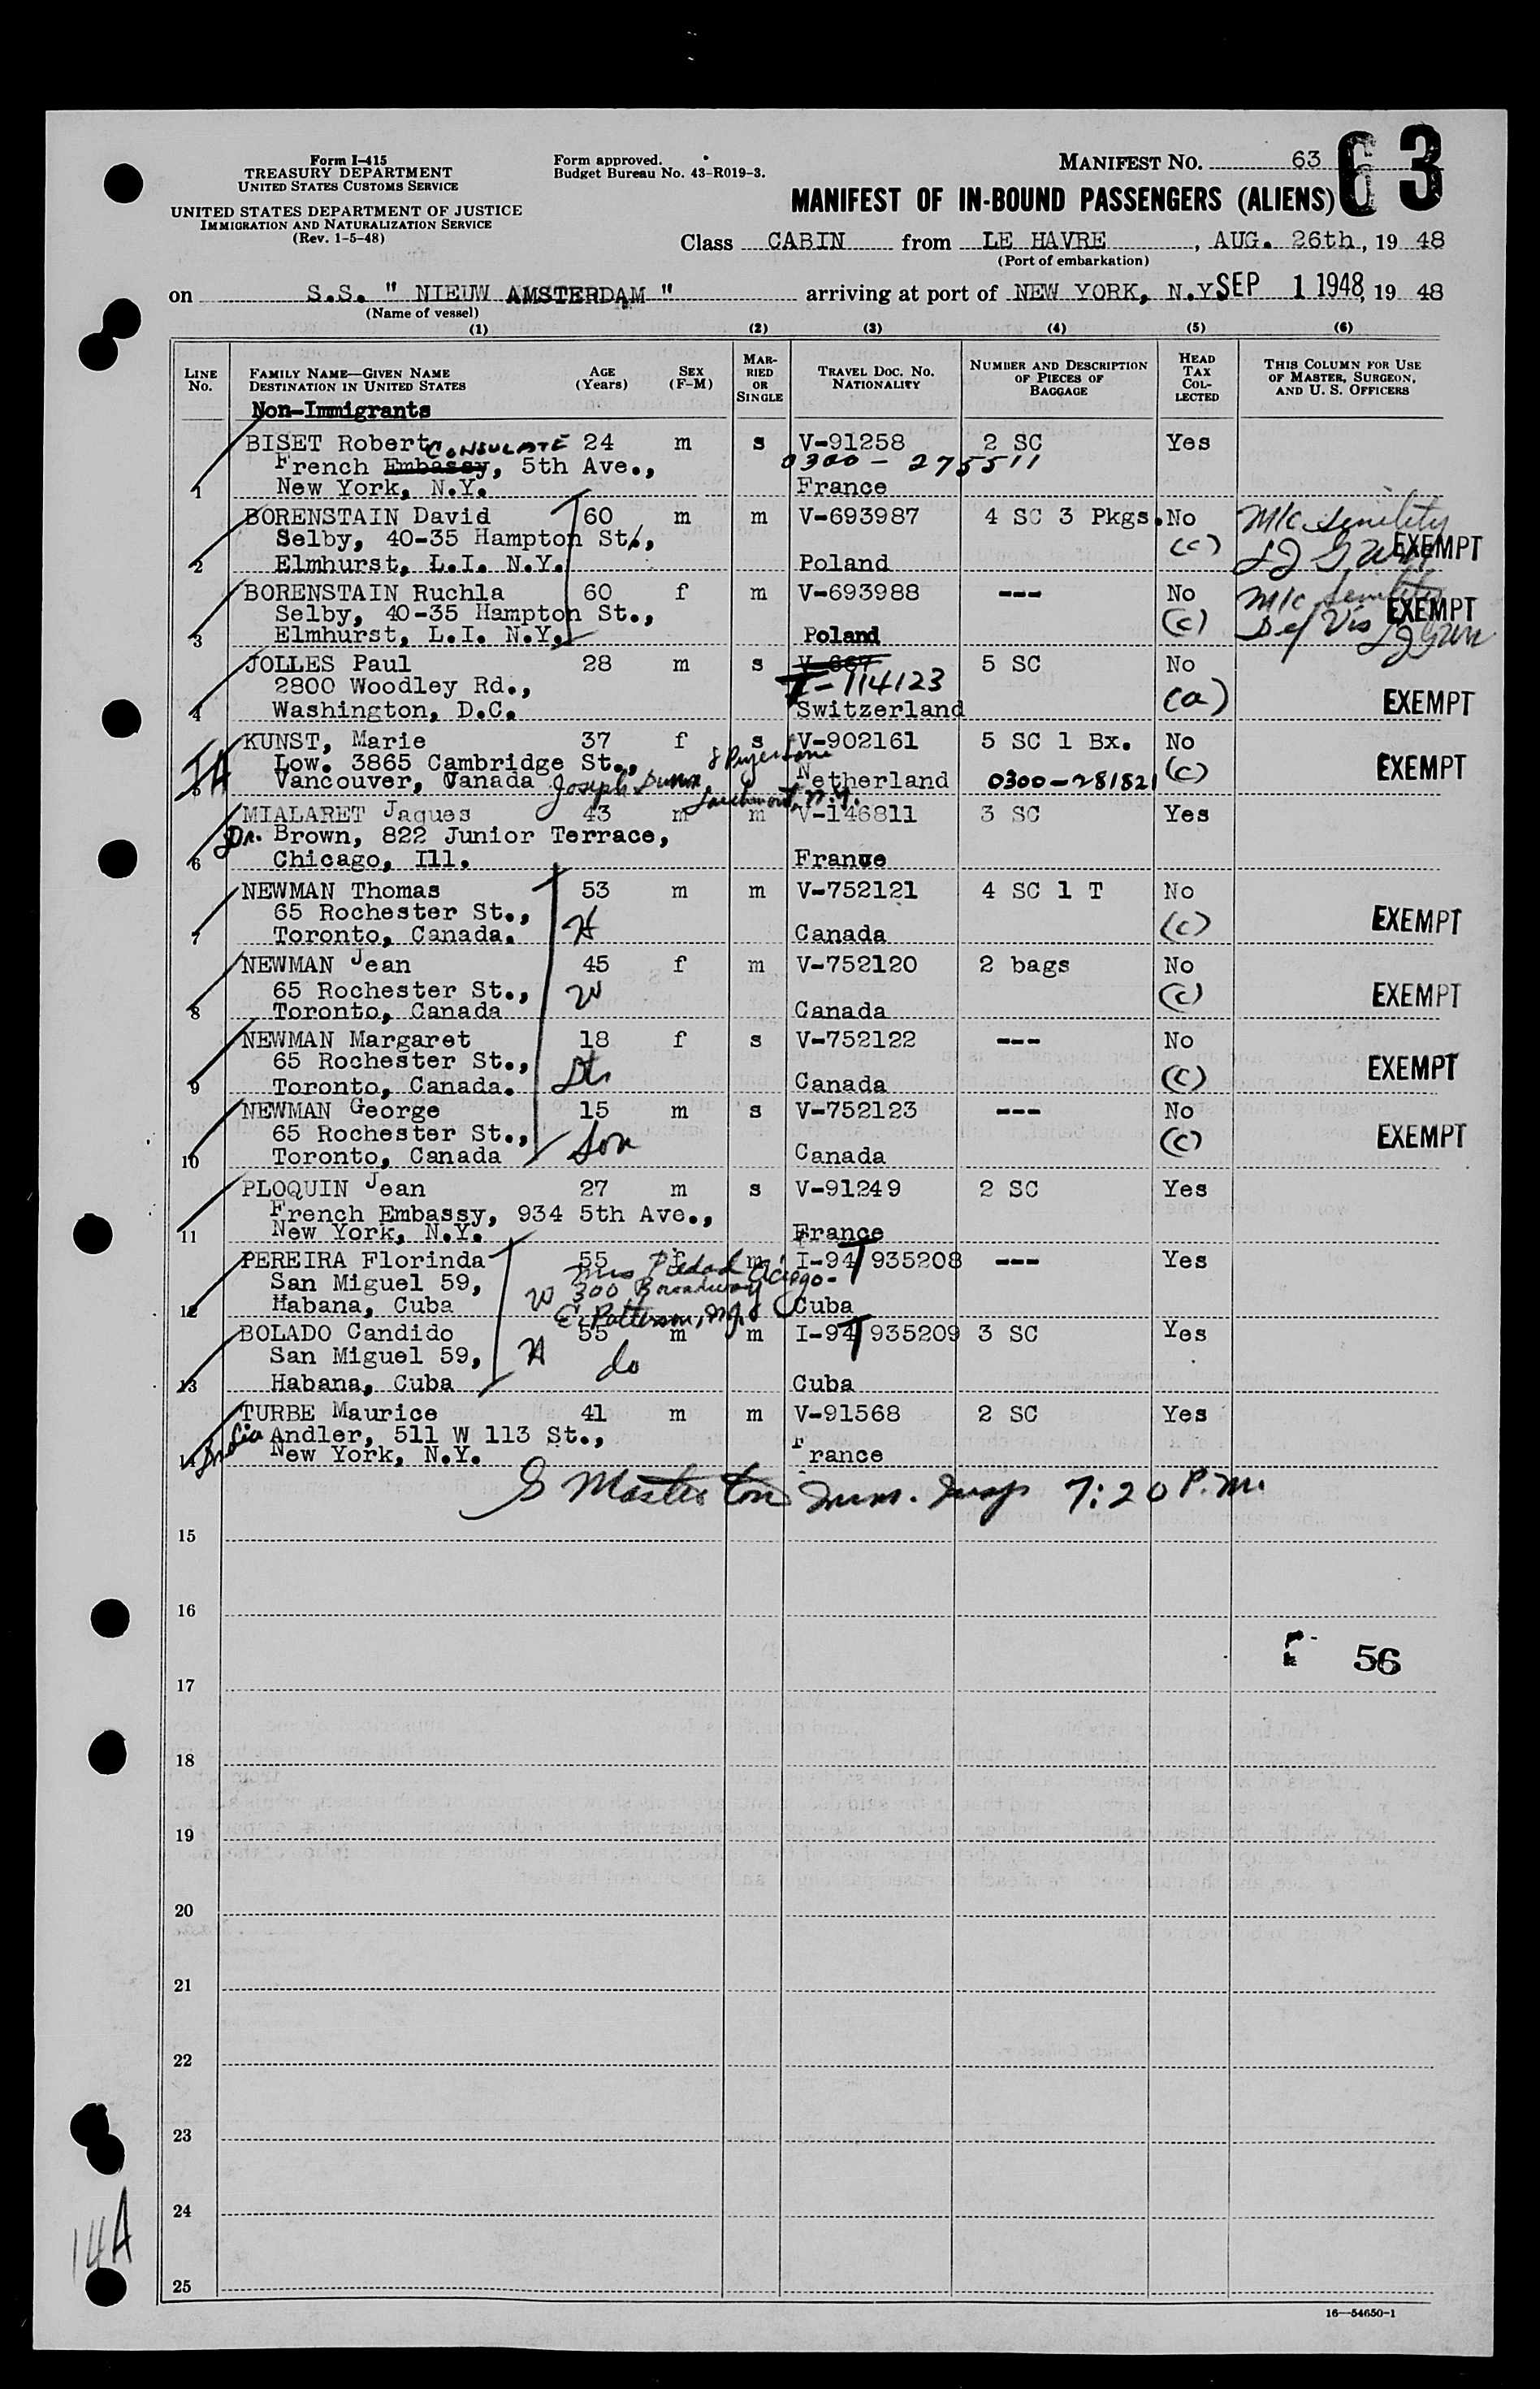 Form I-415
TREASURY DEPARTMENT
UNITED STATES CUSTOMS SERVICE
UNITED STATES DEPARTMENT OF JUSTICE
IMMIGRATION AND NATURALIZATION SERVICE
(Rev. 1-5-48)
Form approved.
Budget Bureau No. 43-R019-3.
MANIFEST No. 63
63
MANIFEST OF IN-BOUND PASSENGERS (ALIENS)
Class CABIN from LE HAVRE, AUG. 26th, 19 48
(Port of embarkation)
on S.S. " NIEUW AMSTERDAM " arriving at port of NEW YORK, N.Y. SEP 1 1948, 19 48
(Name of vessel)
(1) (2) (3) (4) (5) (6)
LINE No. FAMILY NAME—GIVEN NAME DESTINATION IN UNITED STATES AGE (Years) SEX (F-M) MARRIED OR SINGLE TRAVEL DOC. NO. NATIONALITY NUMBER AND DESCRIPTION OF PIECES OF BAGGAGE HEAD TAX COLLECTED THIS COLUMN FOR USE OF MASTER, SURGEON, AND U. S. OFFICERS
Non-Immigrants
BISET Robert 24 m s V-91258 2 SC Yes
CONSULATE
French Embassy, 5th Ave., 0300-275511
1 New York, N.Y. France
BORENSTAIN David 60 m m V-693987 4 SC 3 Pkgs. No M/c Senility
Selby, 40-35 Hampton St., (c) EXEMPT
2 Elmhurst, L.I. N.Y. Poland
BORENSTAIN Ruchla 60 f m V-693988 --- No M/c Senility
Selby, 40-35 Hampton St., (c) EXEMPT
3 Elmhurst, L.I. N.Y. Poland Def Vis
JOLLES Paul 28 m s V-667 5 SC No
2800 Woodley Rd., I-114123 (a) EXEMPT
4 Washington, D.C. Switzerland
KUNST, Marie 37 f s V-902161 5 SC 1 Bx. No
Low. 3865 Cambridge St., (c) EXEMPT
5 Vancouver, Canada Joseph Dunn, Larchmont, N.Y. Netherland 0300-281821
MIALARET Jaques 43 m m V-146811 3 SC Yes
Dr. Brown, 822 Junior Terrace,
6 Chicago, Ill. France
NEWMAN Thomas 53 m m V-752121 4 SC 1 T No
65 Rochester St., H (c) EXEMPT
7 Toronto, Canada. Canada
NEWMAN Jean 45 f m V-752120 2 bags No
65 Rochester St., W (c) EXEMPT
8 Toronto, Canada Canada
NEWMAN Margaret 18 f s V-752122 --- No
65 Rochester St., (c) EXEMPT
9 Toronto, Canada. Canada
NEWMAN George 15 m s V-752123 --- No
65 Rochester St., Son (c) EXEMPT
10 Toronto, Canada Canada
PLOQUIN Jean 27 m s V-91249 2 SC Yes
French Embassy, 934 5th Ave.,
11 New York, N.Y. France
PEREIRA Florinda 55 f m I-94T 935208 --- Yes
San Miguel 59, W Mrs Piedad
300 Broadway
12 Habana, Cuba E. Patterson, N.J. Cuba
BOLADO Candido 55 m m I-94T 935209 3 SC Yes
San Miguel 59, H do
13 Habana, Cuba Cuba
TURBE Maurice 41 m m V-91568 2 SC Yes
Andler, 511 W 113 St.,
14 New York, N.Y. France
S Masterton Imm. Insp 7:20 P.M.
15
16
56
17
18
19
20
21
22
23
24
14A
25
16—54650-1